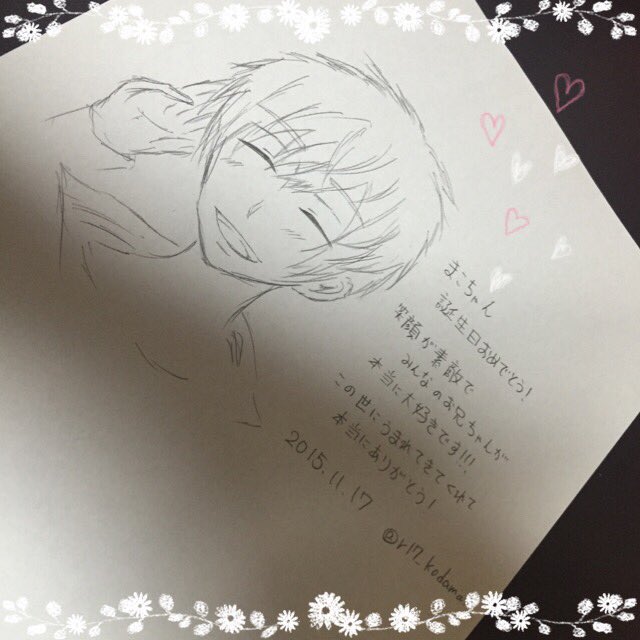 まこちゃん
誕生日おめでとう!
笑顔が素敵で
みんなのお兄ちゃんが
本当に大好きです!!!
この世にうまれてきてくれて
本当にありがとう!
2015.11.17
@r17_kodama